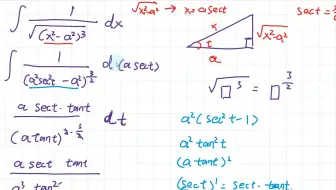 ∫ 1/√(x²-a²)³ dx
√x²-a² → x=a sect
sect =
x
√x²-a²
t
a
∫ 1/(a²sec²t - a²)^(3/2) d(a sect)
√□³ = □^(3/2)
a sect · tant
(a tant)^(2·3/2) dt
a²(sec²t-1)
a²tan²t
(a tant)²
a sect tant
a³ tan²
(sect)' = sect · tant